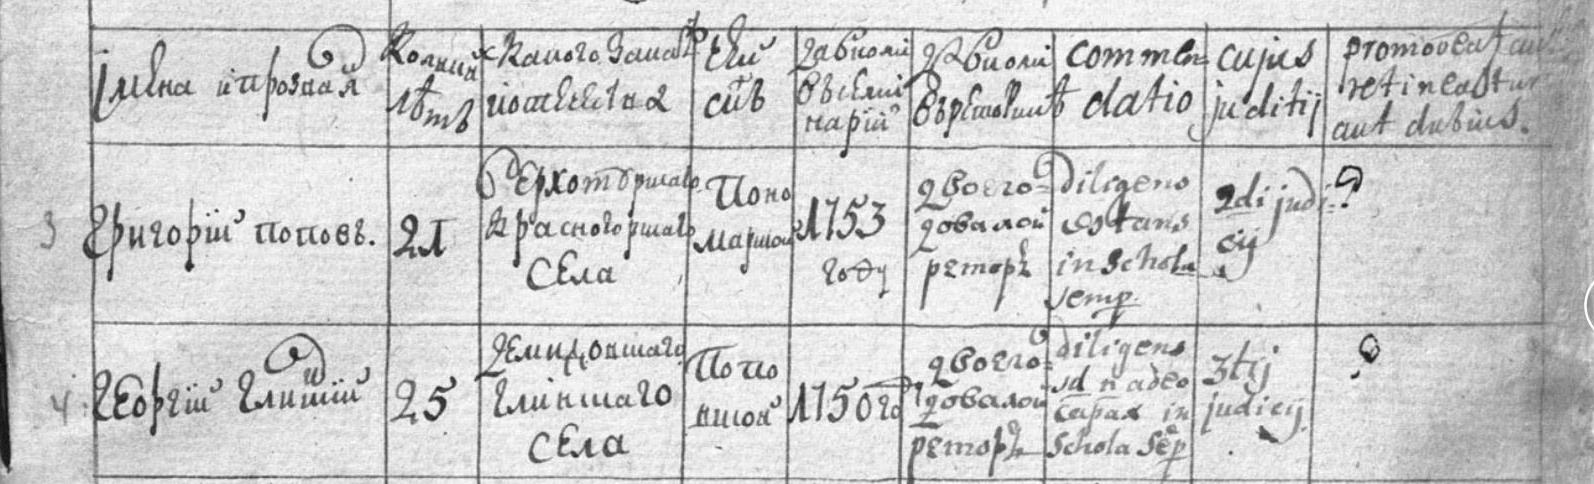 Імена и прозваня
Коликих
лѣтъ
какого заказ
и ошечества
Чей
снъ
давноли
в семи
нарїи
давноли
в реторикѣ
commen
datio
cujus
juditij
promoveatur an
retineatur
aut dubius.
3
Григорїй Поповъ.
21
Верхотурскаго
Красногорскаго
села
Поно
марской
1753
году
двоего
довалой
реторъ
diligens
ostans
in schola
semp
2di judi
cij
?
4
Георгїй Глинскій
25
Демидовскаго
Глинскаго
села
Попо
вской
1750 го
двоего
довалой
реторъ
diligens
sd n adeo
capax in
schola sep
3tij
judicij
?